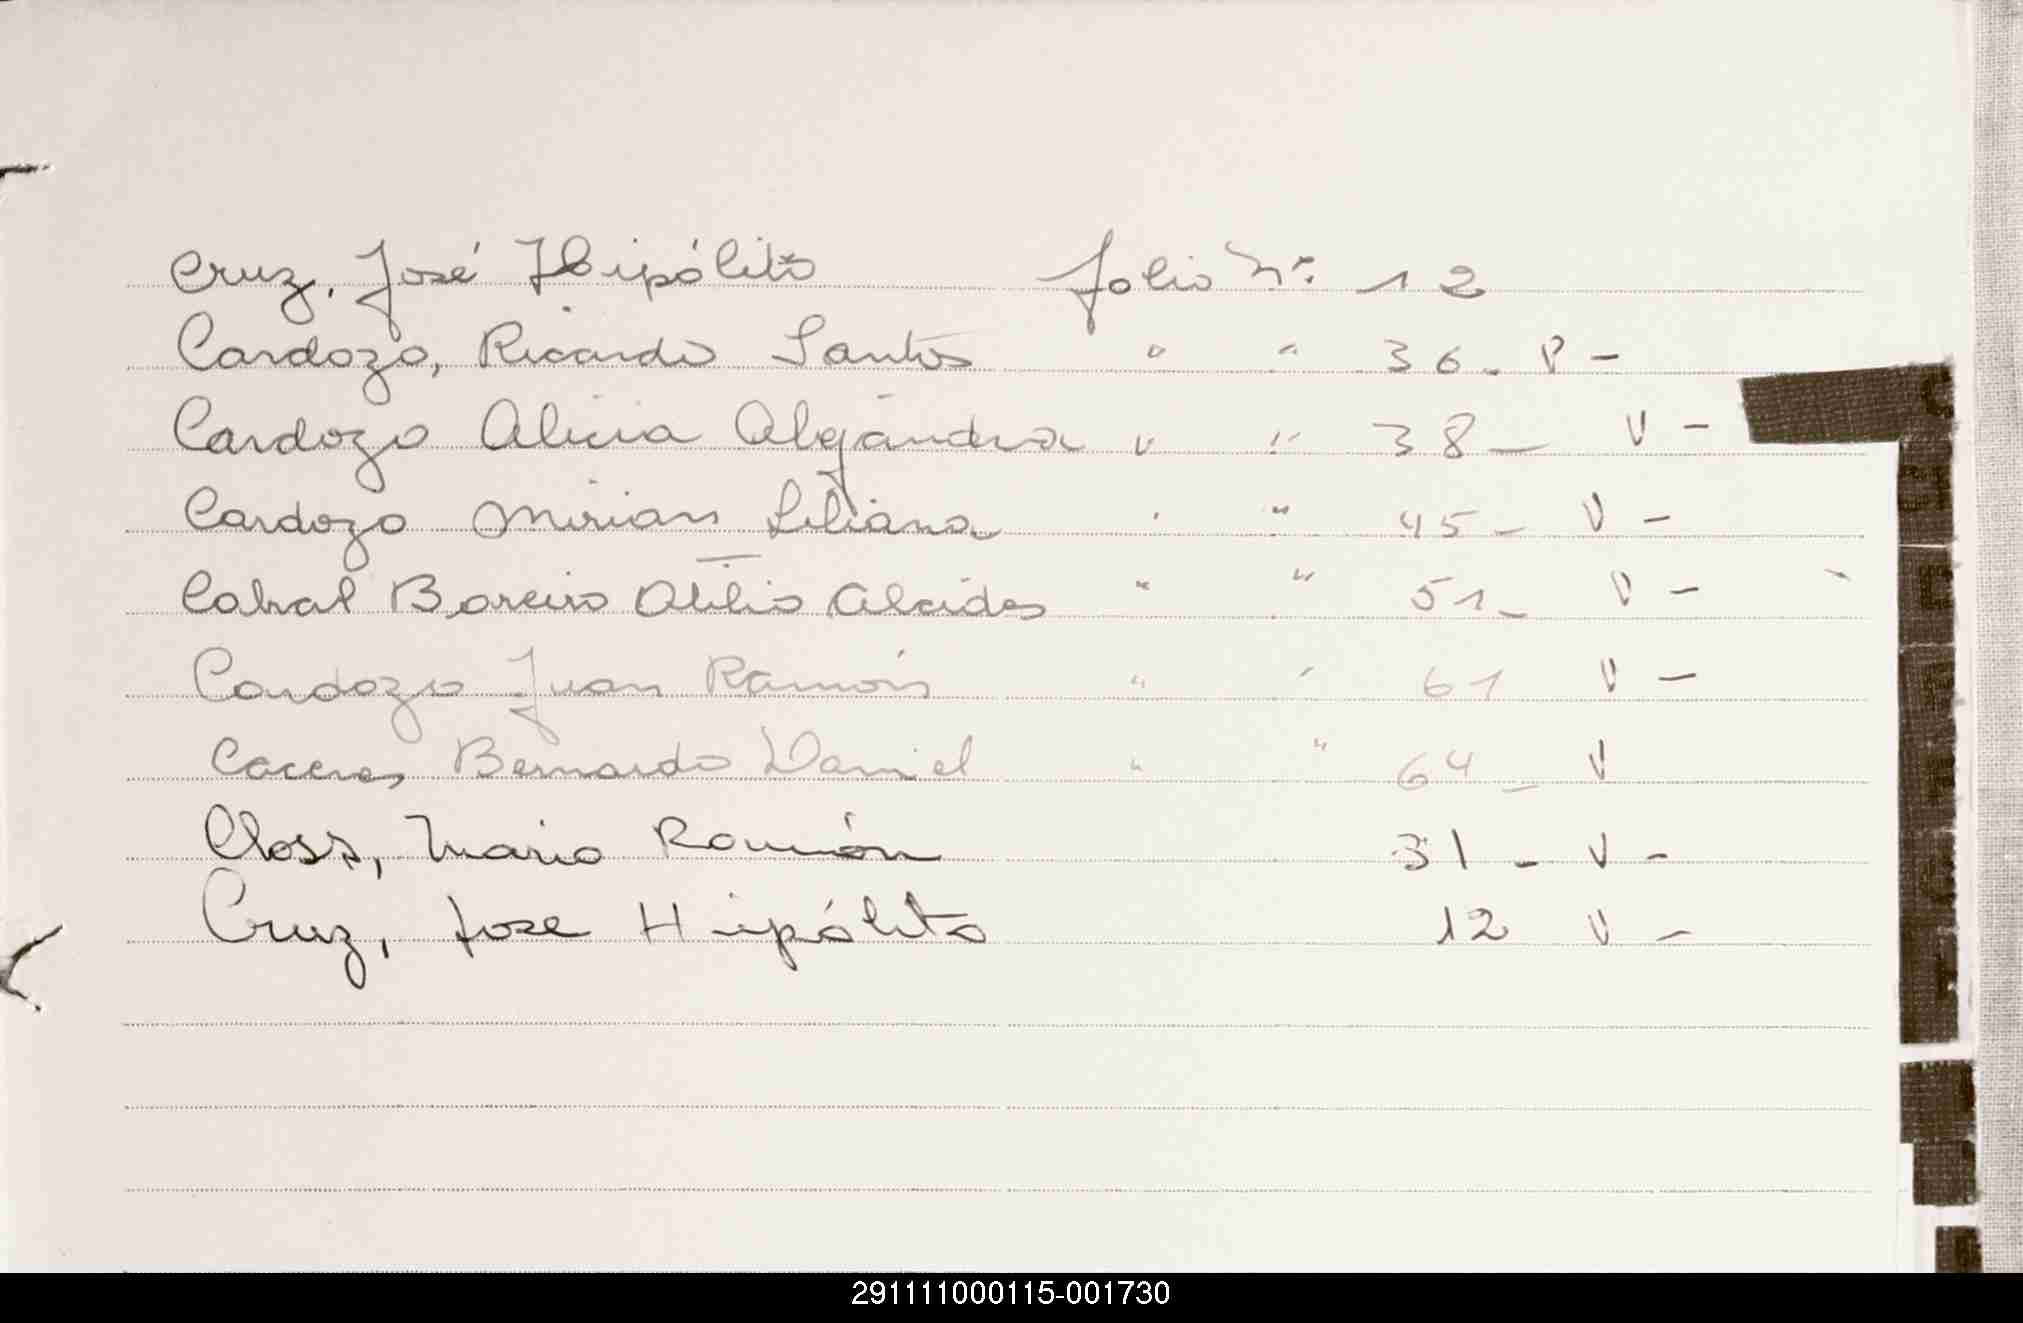 Cruz, José Hipólito folio Nº 12
Cardozo, Ricardo Santos " " 36 - V -
Cardozo Alicia Alejandra " " 38 - V -
Cardozo Mirian Liliana " " 45 - V -
Cabral Boreiro Atilio Alcides " " 51 - V -
Cardozo Juan Ramón " " 61 V -
Caceres Bernardo Daniel " " 64 - V
Closs, Mario Ramón 31 - V -
Cruz, Jose Hipólito 12 V -
291111000115-001730